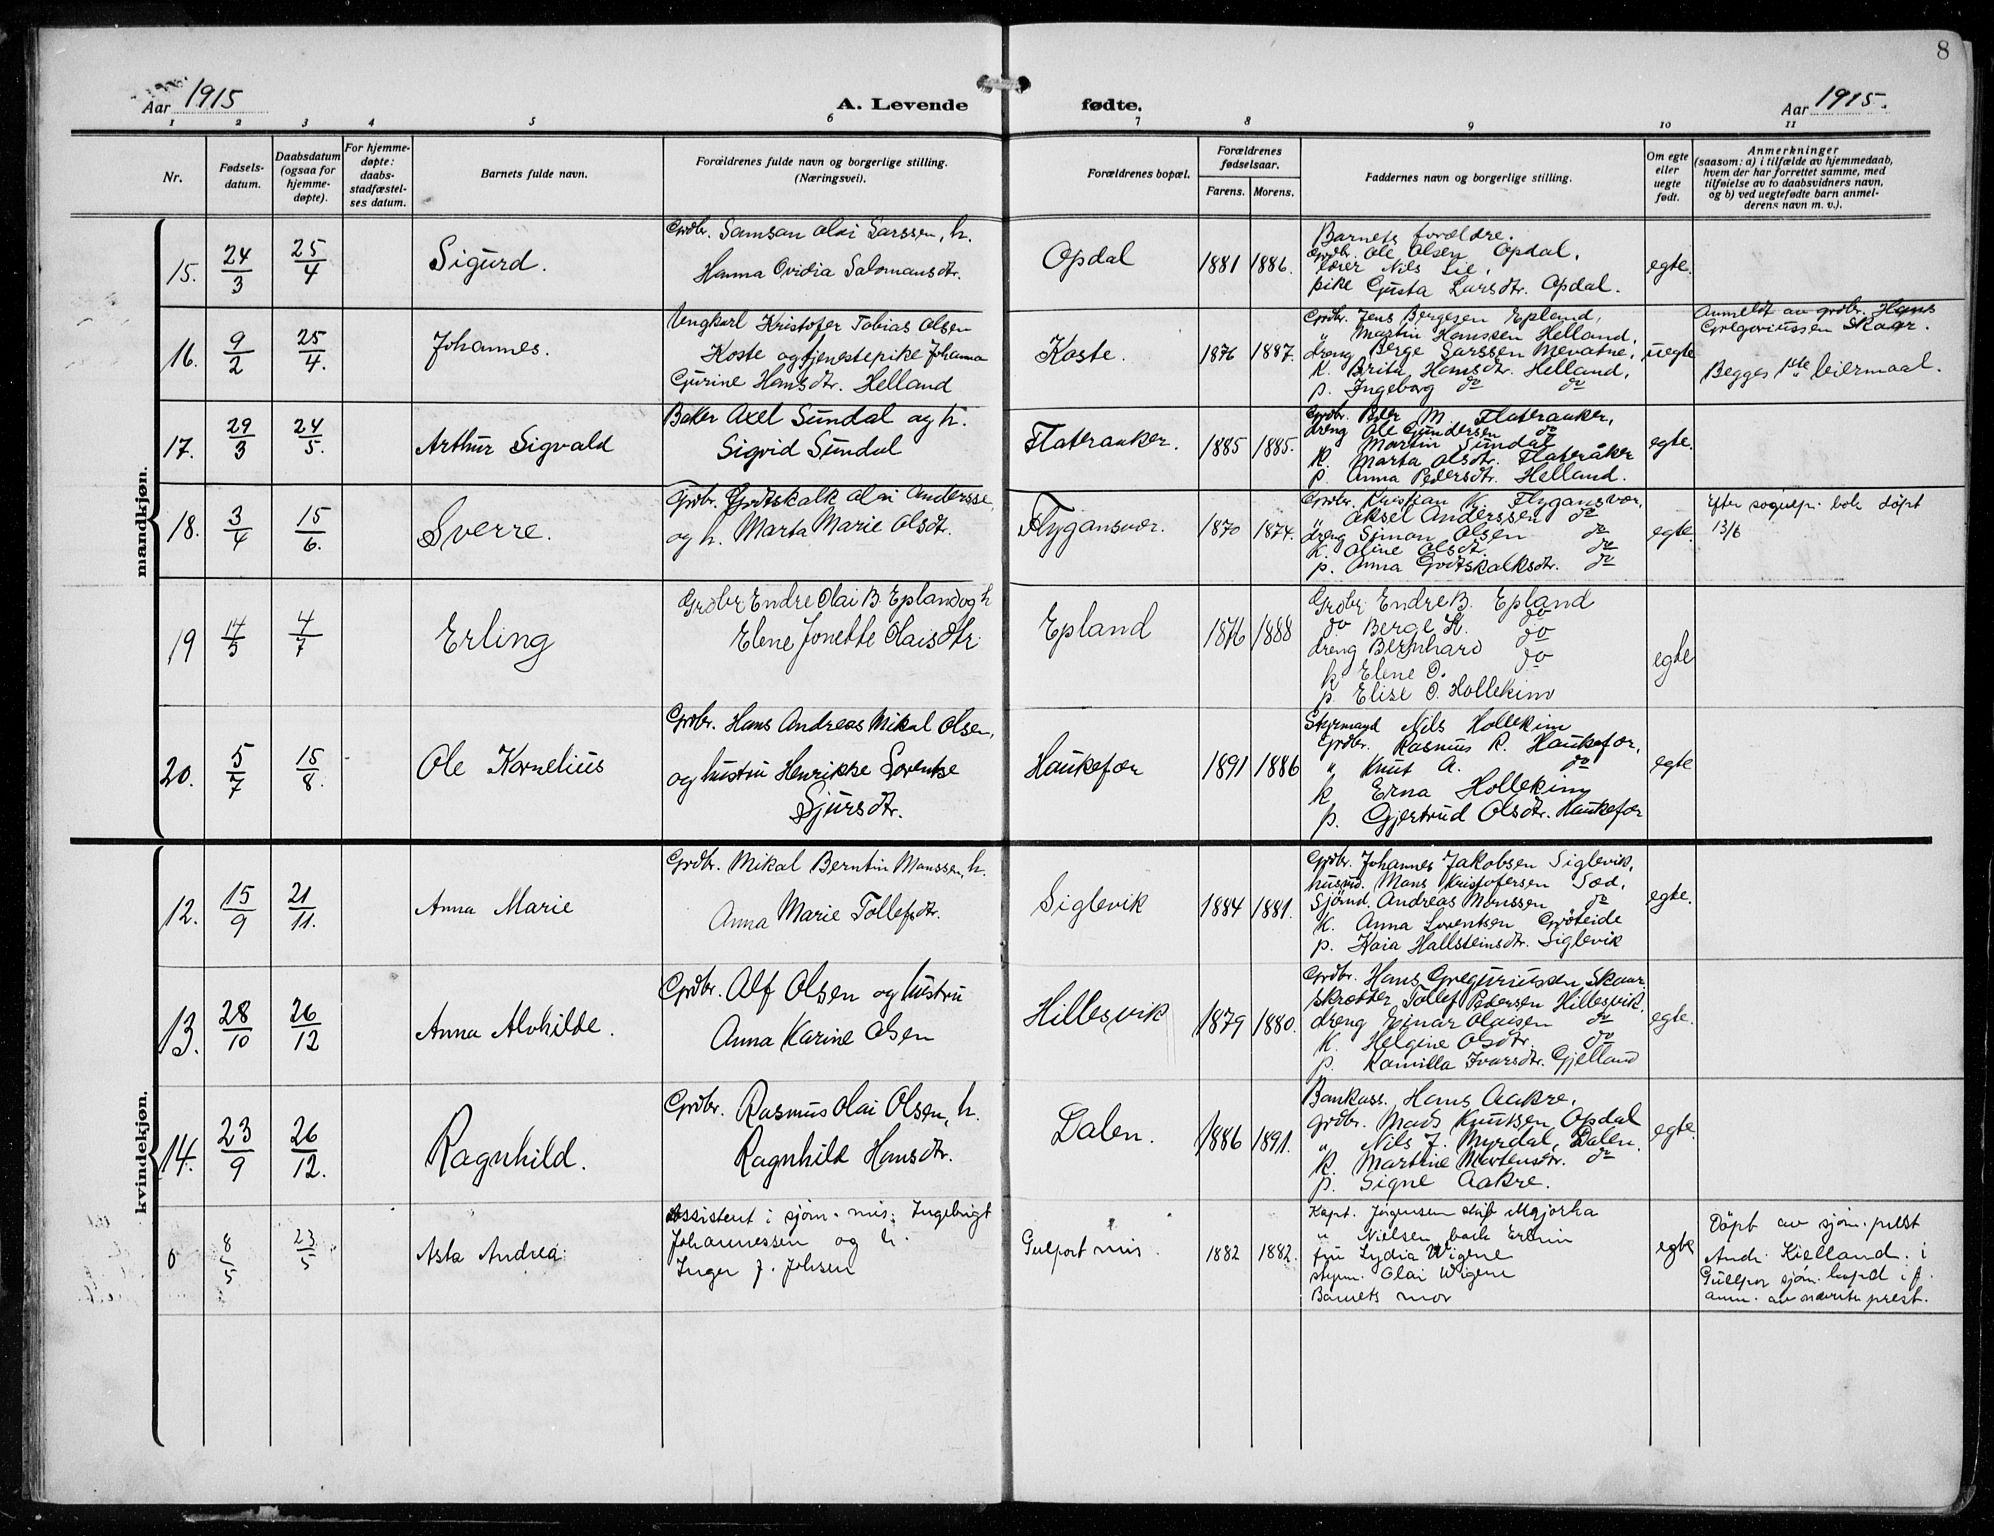 8
Aar 1915
A. Levende fødte.
Aar 1915.
1 2 3 4 5 6 7 8 9 10 11
Nr.
Fødsels-
datum.
Daabsdatum
(ogsaa for
hjemme-
døpte).
For hjemme-
døpte:
daabs-
stadfæstel-
ses datum.
Barnets fulde navn.
Forældrenes fulde navn og borgerlige stilling.
(Næringsvei).
Forældrenes bopæl.
Forældrenes
fødselsaar.
Farens. Morens.
Faddernes navn og borgerlige stilling.
Om egte
eller
uegte
født.
Anmerkninger
(saasom: a) i tilfælde av hjemmedaab,
hvem der har forrettet samme, med
tilføielse av to daabsvidners navn,
og b) ved uegtefødte barn anmel-
derens navn m. v.).
mandkjøn.
15. 24/3 25/4 Sigurd.
Grdbr. Samson Olai Larssen, h.
Hanna Ovidia Salomonsdtr.
Opdal 1881 1886.
Barnets forældre.
Grdbr. Ole Olsen Opdal,
lærer Nils Lie,
pike Gusta Larsdtr. Opdal.
egte.
16. 9/2 25/4. Johannes.
Ungkarl Kristofer Tobias Olsen
Koste og tjenestepike Johanna
Gurine Hansdtr. Helland
Koste. 1876 1887.
Grdbr. Jens Bergesen Epland,
" Martin Hanssen Helland,
dreng Berge Larssen Mevatne,
k. Brita Hansdtr. Helland,
p. Ingeborg do do
uegte
Anmeldt av grdbr. Hans
Gregoriussen Skaar.
Begges 1ste leiermaal.
17. 29/3 24/5. Arthur Sigvald
Baker Axel Sundal og h.
Sigrid Sundal
Flateraaker. 1885 1885.
Grdbr. Peder M. Flateraaker,
dreng Ole Gundersen do
Martin Sundal
k. Marta Olsdtr. Flateråker
p. Anna Pedersdtr. Helland.
egte.
18. 3/4 15/6. Sverre.
Grdbr. Godtskalk Olai Anderssen
og h. Marta Marie Olsdt.
Flygansvær. 1870 1874.
Grdbr. Kristian K. Flygansvær,
" Aksel Anderssen do
dreng Simon Olsen do
k. Oline Olsdt. do
p. Anna Godtskalksdtr. do
egte.
Efter sognepr. bok døpt
13/6
19 14/5 4/7 Erling
Grdbr Endre Olai B. Epland og h
Elene Jonette Olaisdtr.
Epland 1876 1888
Grdbr Endre B. Epland
do Berge H. do
dreng Bernhard do
k Elene O. do
p. Elise O. Hollekim
egte
20. 5/7 15/8. Ole Kornelius
Grdbr. Hans Andreas Mikal Olsen,
og hustru Henrikke Lorentse
Sjursdtr.
Haukefær 1891 1886
Styrmand Nils Hollekim
Grdbr. Rasmus R. Haukefær,
" Knut A. do
k Erna Hollekim
p. Gjertrud Olsdtr. Haukefær
egte
kvindekjøn.
12. 15/9 21/11. Anna Marie
Grdbr. Mikal Berntin Monssen, h.
Anna Marie Tollefsdtr.
Siglevik 1884 1881.
Grdbr. Johannes Jakobsen Siglevik,
husmd. Mons Kristofersen Sæd,
Sjømd. Andreas Monssen do
k. Anna Lorentsen Grøteide
p. Kaia Hallsteinsdtr. Siglevik
egte.
13. 28/10 26/12 Anna Alvhilde.
Grdbr. Alf Olsen og hustru
Anna Karine Olsen
Hillesvik 1879 1880.
Grdbr. Hans Greguriussen Skaar,
skrædder Tollef Pedersen Hillesvik,
dreng Einar Olaisen do
k. Helgine Olsdtr. do
p. Kamilla Ivarsdtr. Gjelland
egte.
14. 23/9 26/12. Ragnhild.
Grdbr. Rasmus Olai Olsen, h.
Ragnhild Hansdtr.
Dalen. 1886 1891.
Bankass. Hans Aakre,
grdbr. Mads Knutsen Opdal
" Nils J. Myrdal, Dalen.
k. Martine Mortensdtr. do
p. Signe Aakre.
egte.
0 8/5 23/5 Asta Andrea
Assistent i sjøm. mis. Ingebrigt
Johannessen og h.
Inger J. Johsen
Gulport mis. 1882 1882.
Kapt. Jörgensen skib Majorka
" Nielsen, bark
fru Lydia Wigene
styrm. Olai Wigene
Barnets mor
egte
Döpt av sjöm. prest
Andr. Kielland i
Gullpor sjöm. kapel i f.
anm. av nævnte prest.